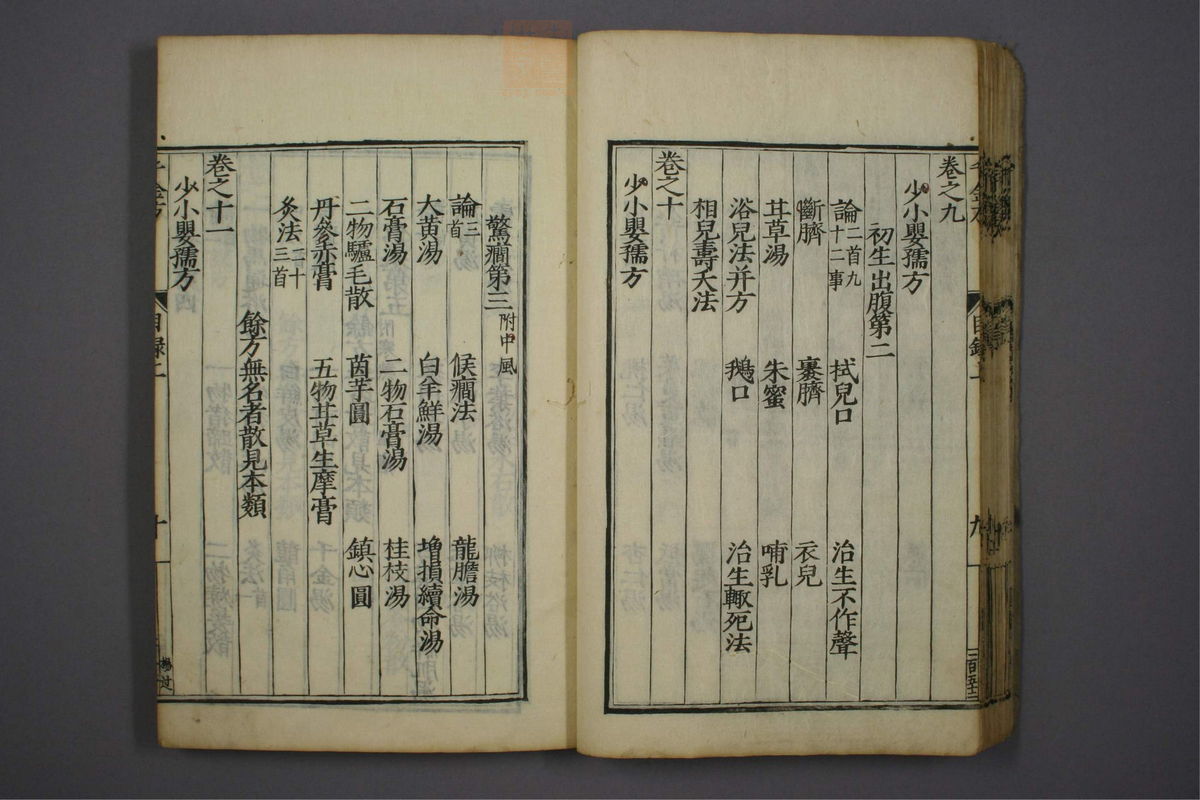 卷之九
少小嬰孺方
初生出腹第二
論二首九十二事 拭兒口 治生不作聲
斷臍 裹臍 衣兒
甘草湯 朱蜜 哺乳
浴兒法并方 鵝口 治生輙死法
相兒壽夭法
卷之十
少小嬰孺方
驚癇第三附中風
論三首 候癇法 龍膽湯
大黃湯 白羊鮮湯 增損續命湯
石膏湯 二物石膏湯 桂枝湯
二物驢毛散 茵芋圓 鎮心圓
丹參赤膏 五物甘草生摩膏
灸法二十三首
餘方無名者散見本類
卷之十一
少小嬰孺方
目錄二
十